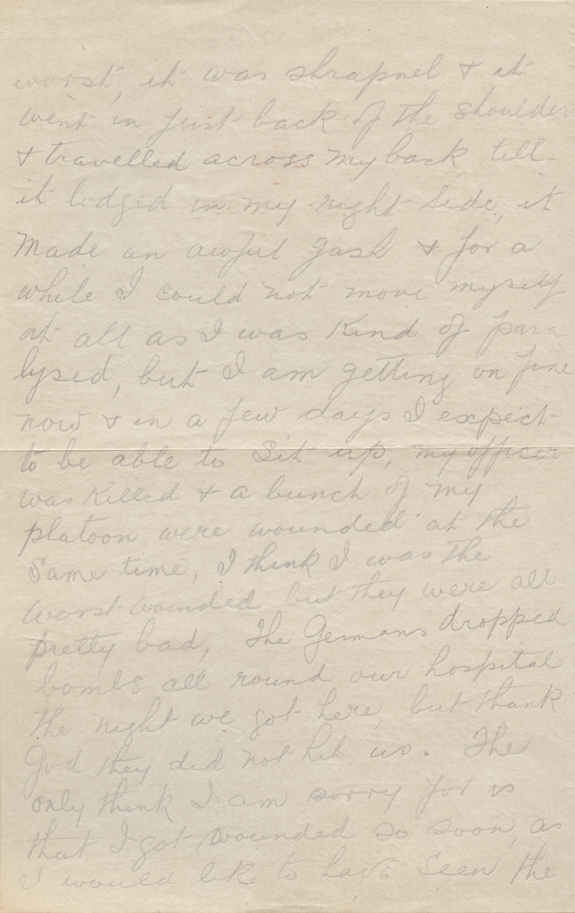 worst, it was shrapnel & it
went in just back of the shoulder
& travelled across my back till
it lodgid in my right side, it
made an awful gash & for a
while I could not move myself
at all as I was kind of para
lysed, but I am getting on fine
now & in a few days I expect
to be able to sit up, my officer
was killed & a bunch of my
platoon were wounded at the
same time, I think I was the
worst wounded but they were all
pretty bad, The Germans dropped
bombs all round our hospital
the night we got here, but thank
God they did not hit us. The
only think I am sorry for is
that I got wounded so soon, as
I would like to have seen the